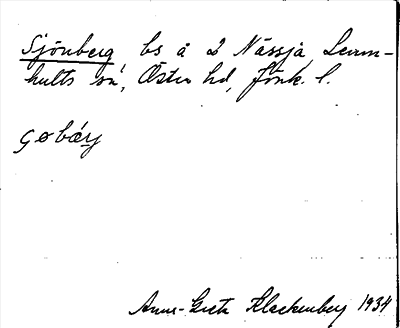 Sjönberg, bs å 2 Nässja, Lerum-
hults sn, Östra hd, Jönk. l.
gøbæry
Anna-Greta Kleckenberg 1934